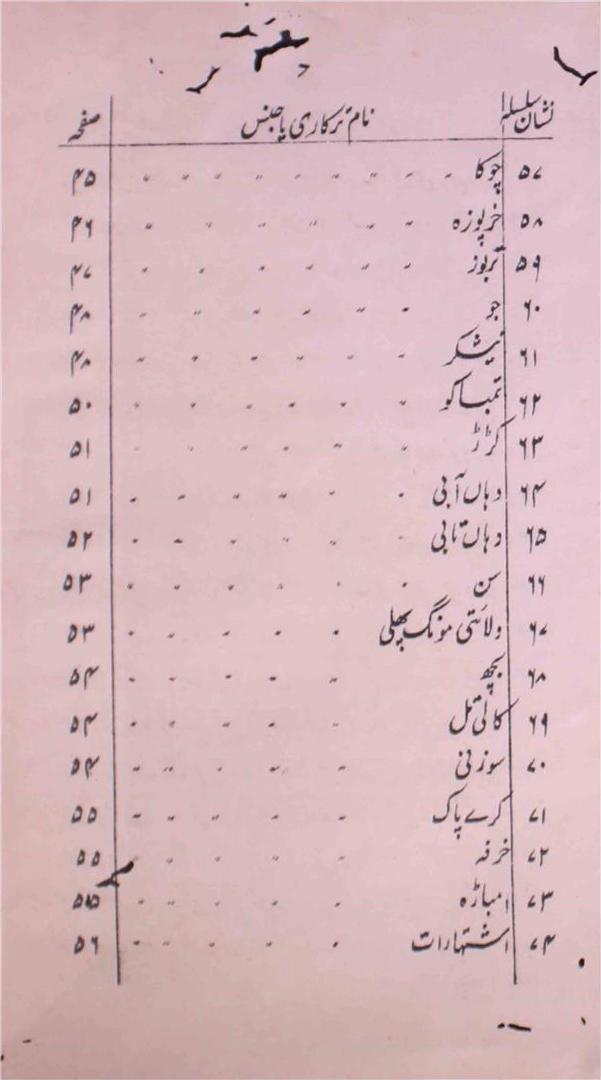 نشان سلسلہ نام ترکاری یا جنس صفحہ
۵۷ چوکا ۴۵
۵۸ خرپوزہ ۴۶
۵۹ تربوز ۴۷
۶۰ جو ۴۸
۶۱ نیشکر ۴۸
۶۲ تمباکو ۵۰
۶۳ کڑڑ ۵۱
۶۴ دہان آبی ۵۱
۶۵ دہان تابی ۵۲
۶۶ سن ۵۳
۶۷ ولائتی مونگ پھلی ۵۳
۶۸ بچھ ۵۴
۶۹ کالی تل ۵۴
۷۰ سوزنی ۵۴
۷۱ کرے پاک ۵۵
۷۲ خرفہ ۵۵
۷۳ امباڑہ ۵۵
۷۴ اشتہارات ۵۶